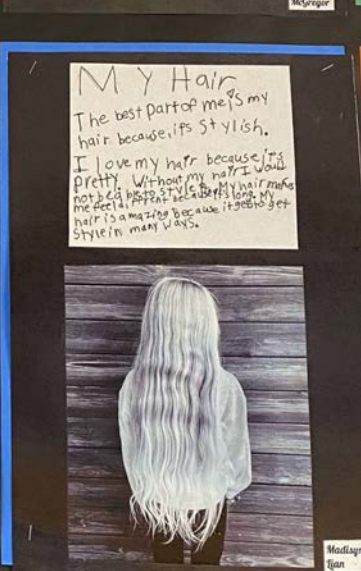 McGregor
My Hair
The best part of me is my
hair because, it's stylish.
I love my hair because, it's
pretty. Without my hair I would
not be able to style it. My hair makes
me feel different because it's long. My
hair is amazing because it gets to get
style in many ways.
Madisyn
Lian